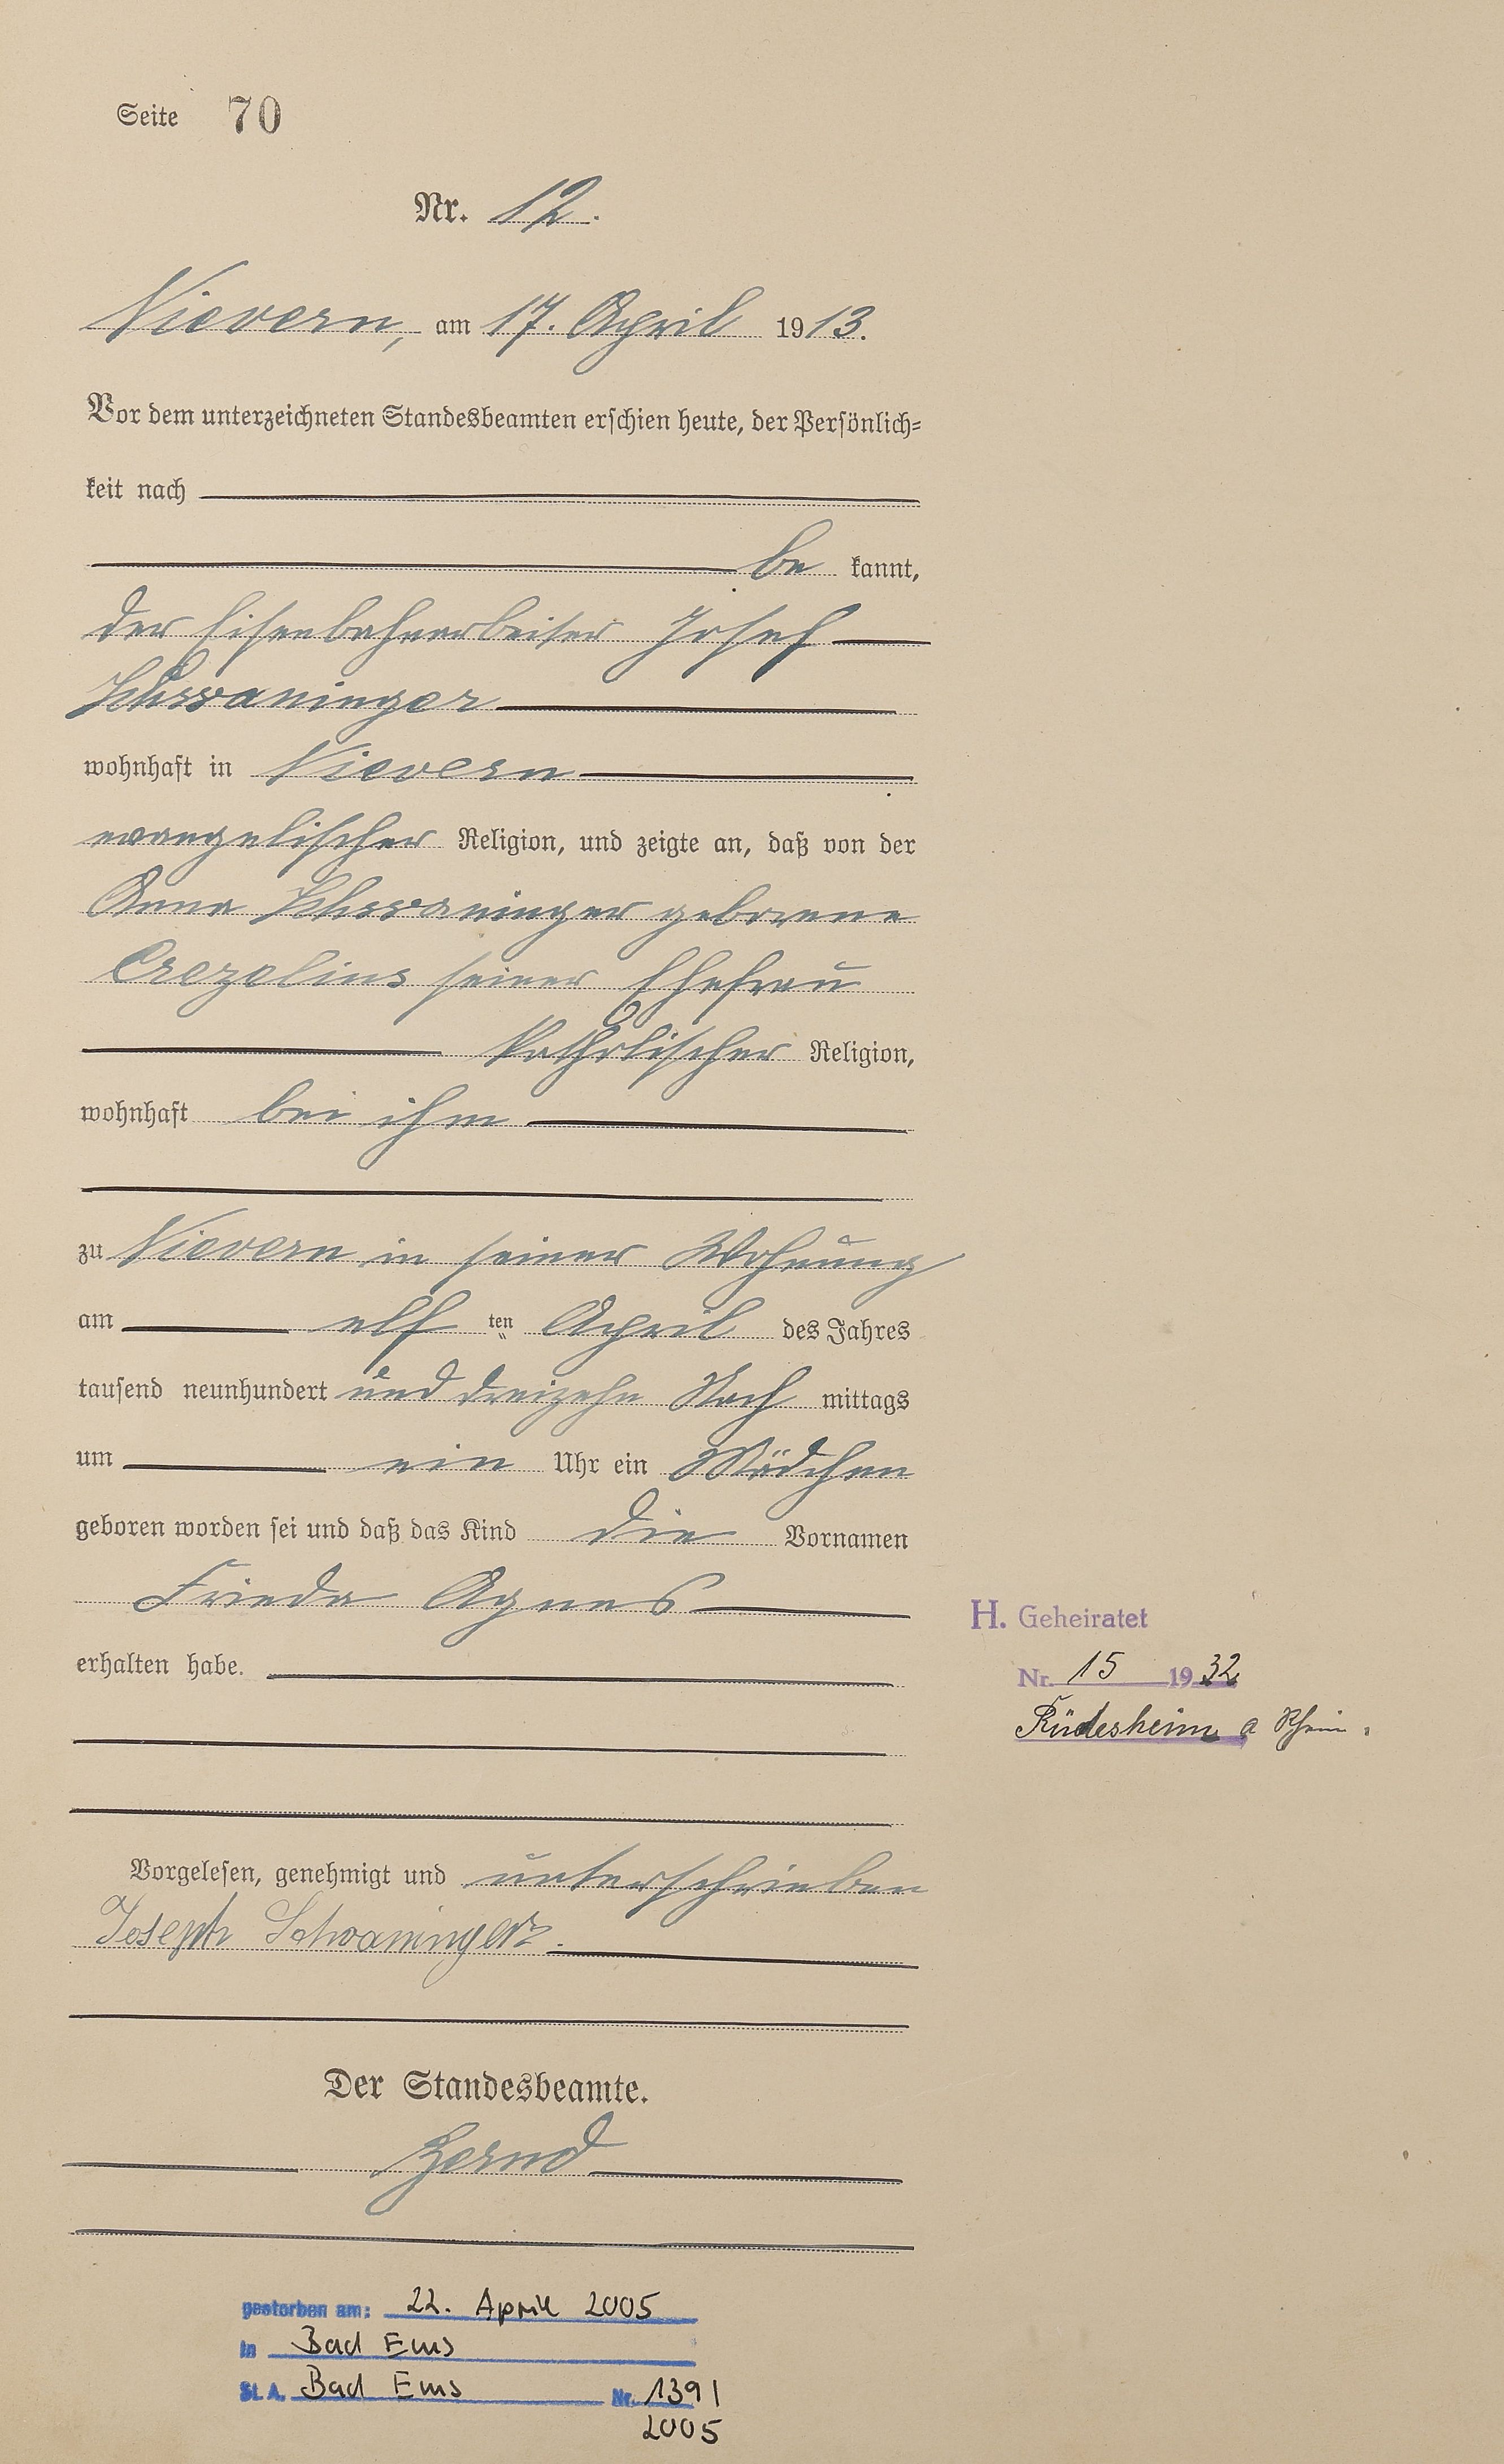 Seite 70
Nr. 12.
Nievern, am 17. April 1913.
Vor dem unterzeichneten Standesbeamten erschien heute, der Persönlich=
keit nach
be kannt,
der Eisenbahnarbeiter Josef
Schwaninger
wohnhaft in Nievern
evangelischer Religion, und zeigte an, daß von der
Anna Schwaninger geborene
Crezelius seiner Ehefrau
katholischer Religion,
wohnhaft bei ihm
zu Nievern in seiner Wohnung
am elf ten April des Jahres
tausend neunhundert und dreizehn Nach mittags
um ein Uhr ein Mädchen
geboren worden sei und daß das Kind die Vornamen
Frieda Agnes
erhalten habe.
H. Geheiratet
Nr. 15 1932
Rüdesheim a Rhein.
Vorgelesen, genehmigt und unterschrieben
Joseph Schwaninger.
Der Standesbeamte.
gestorben am: 22. April 2005
in Bad Ems
St. A. Bad Ems Nr. 1391
2005